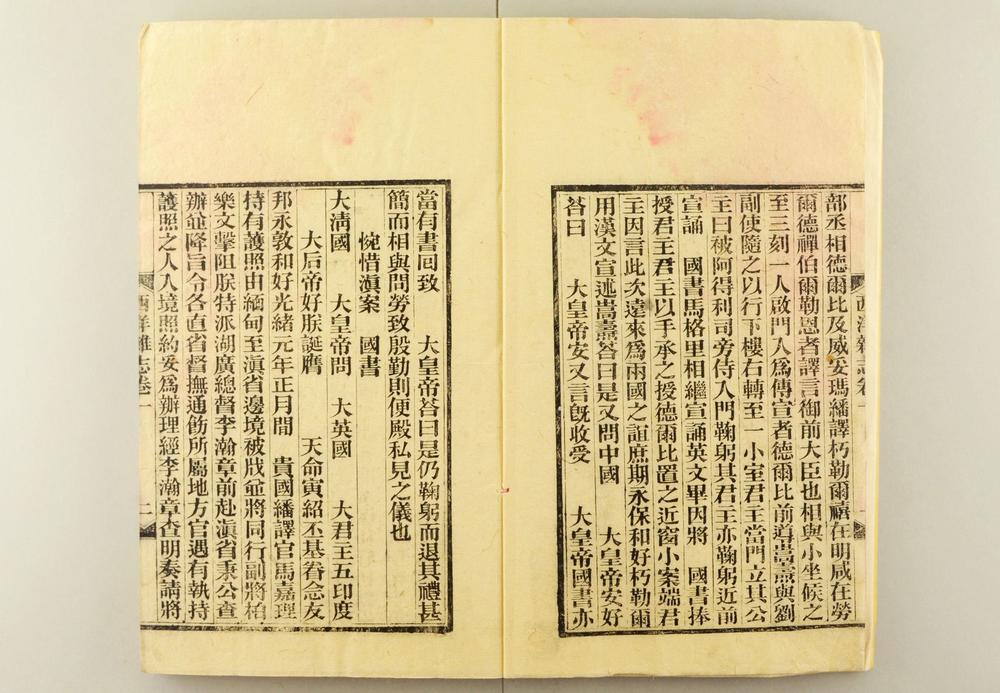 部丞相德爾比及威妥瑪繙譯朽勒爾禧在明咸在勞
爾德禪伯爾勒恩者譯言御前大臣也相與小坐候之
至三刻一人啟門入爲傳宣者德爾比前導嵩燾與劉
副使隨之以行下樓右轉至一小室君主當門立其公
主曰被阿得利司旁侍入門鞠躬其君主亦鞠躬近前
宣誦 國書馬格里相繼宣誦英文畢因將 國書捧
授君主君主以手承之授德爾比置之近窗小案端君
主因言此次遠來爲兩國之誼庶期永保和好朽勒爾
用漢文宣述嵩燾答曰是又問中國 大皇帝安好
荅曰 大皇帝安又言旣收受 大皇帝國書亦
西洋雜志卷一
當有書回致 大皇帝荅曰是仍鞠躬而退其禮甚
簡而相與問勞致殷勤則便殿私見之儀也
惋惜滇案 國書
大淸國 大皇帝問 大英國 大君主五印度
大后帝好朕誕膺 天命寅紹丕基眷念友
邦永敦和好光緒元年正月間 貴國繙譯官馬嘉理
持有護照由緬甸至滇省邊境被戕並將同行副將柏
樂文擊阻朕特派湖廣總督李瀚章前赴滇省秉公查
辦並降旨令各直省督撫通飭所屬地方官遇有執持
護照之人入境照約妥爲辦理經李瀚章查明奏請將
西洋雜志卷一 二